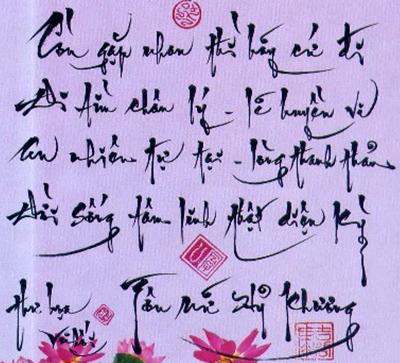 Còn gặp nhau thì hãy cứ đi
Đi tìm chân lý - lẽ huyền vi
An nhiên tự tại - lòng thanh thản
Đời sống tâm linh thật diệu kỳ
Tôn Nữ Hỷ Khương
Thư họa
Vũ Hối